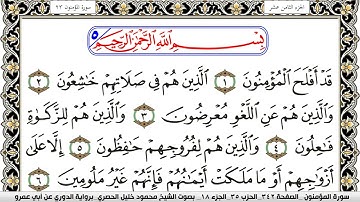 الجزء الثامن عشر
سورة المؤمنون ٢٣
بِسْمِ اللَّهِ الرَّحْمَٰنِ الرَّحِيمِ
قَدْ أَفْلَحَ الْمُؤْمِنُونَ ١ الَّذِينَ هُمْ فِي صَلَاتِهِمْ خَاشِعُونَ ٢
وَالَّذِينَ هُمْ عَنِ اللَّغْوِ مُعْرِضُونَ ٣ وَالَّذِينَ هُمْ لِلزَّكَوٰةِ
فَاعِلُونَ ٤ وَالَّذِينَ هُمْ لِفُرُوجِهِمْ حَافِظُونَ ٥ إِلَّا عَلَىٰ
أَزْوَاجِهِمْ أَوْ مَا مَلَكَتْ أَيْمَانُهُمْ فَإِنَّهُمْ غَيْرُ مَلُومِينَ ٦
سورة المؤمنون الصفحة ٣٤٢ الحزب ٣٥ الجزء ١٨ بصوت الشيخ محمود خليل الحصري برواية الدوري عن أبي عمرو